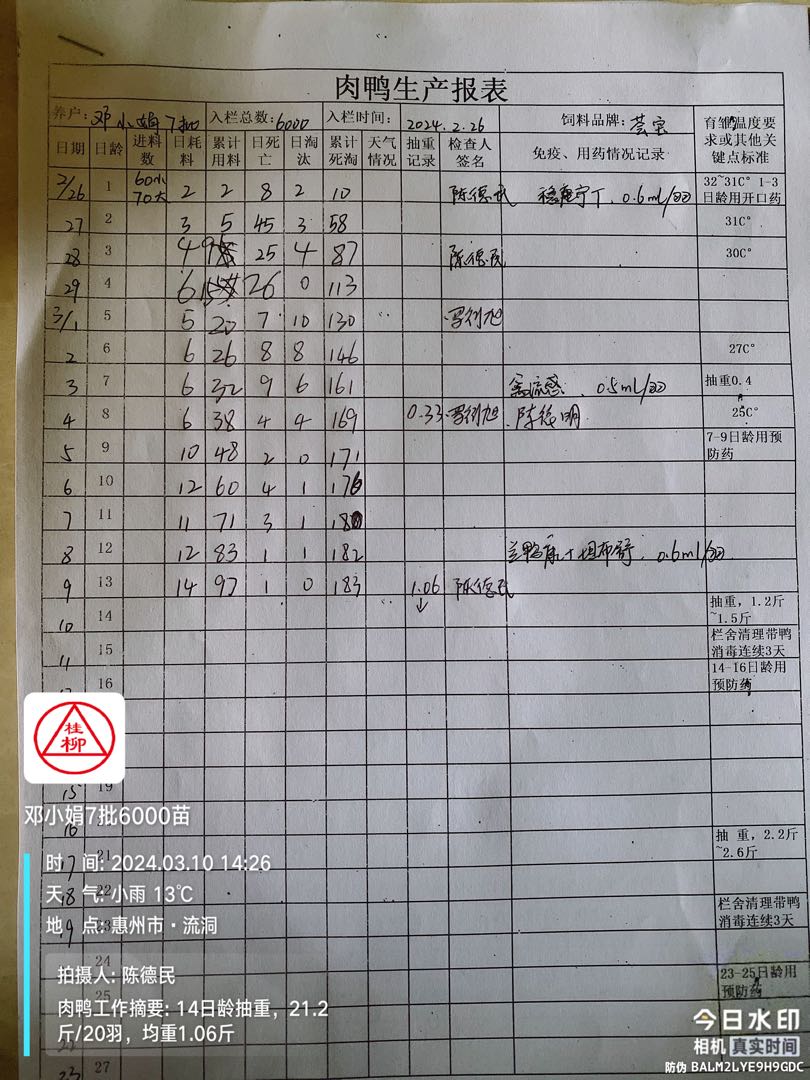 肉鸭生产报表
养户: 邓小娟7批 入栏总数: 6000 入栏时间: 2024.2.26 饲料品牌: 芸宝 育雏温度要求或其他关键点标准
日期 日龄 进料数 日耗料 累计用料 日死亡 日淘汰 累计死淘 天气情况 抽重记录 检查人签名 免疫、用药情况记录
2/26 1 60小 70大 2 2 8 2 10 陈德民 0.6ml/羽 32~31C° 1-3日龄用开口药
27 2 3 5 45 3 58 31C°
28 3 4 9 25 4 87 陈德民 30C°
29 4 6 15 26 0 113
3/1 5 5 20 7 10 130
2 6 6 26 8 8 146 27C°
3 7 6 32 9 6 161 禽流感 0.5ml/羽 抽重0.4
4 8 6 38 4 4 169 0.33 陈德明 25C°
5 9 10 48 2 0 171 7-9日龄用预防药
6 10 12 60 4 1 176
7 11 11 71 3 1 180
8 12 12 83 1 1 182 0.6ml/羽
9 13 14 97 1 0 183 1.06 陈德民
10 14 抽重，1.2斤~1.5斤
11 15 栏舍清理带鸭消毒连续3天
16 14-16日龄用预防药
桂柳
15 19
邓小娟7批6000苗
16
抽 重，2.2斤~2.6斤
17 21
时 间: 2024.03.10 14:26
天 气: 小雨 13℃
18 22 栏舍清理带鸭消毒连续3天
地 点: 惠州市·流洞
19 23
24 23-25日龄用预防药
拍摄人: 陈德民
25
肉鸭工作摘要: 14日龄抽重，21.2
斤/20羽，均重1.06斤
今日水印
相机 真实时间
23 27
防伪 BALM2LYE9H9GDC